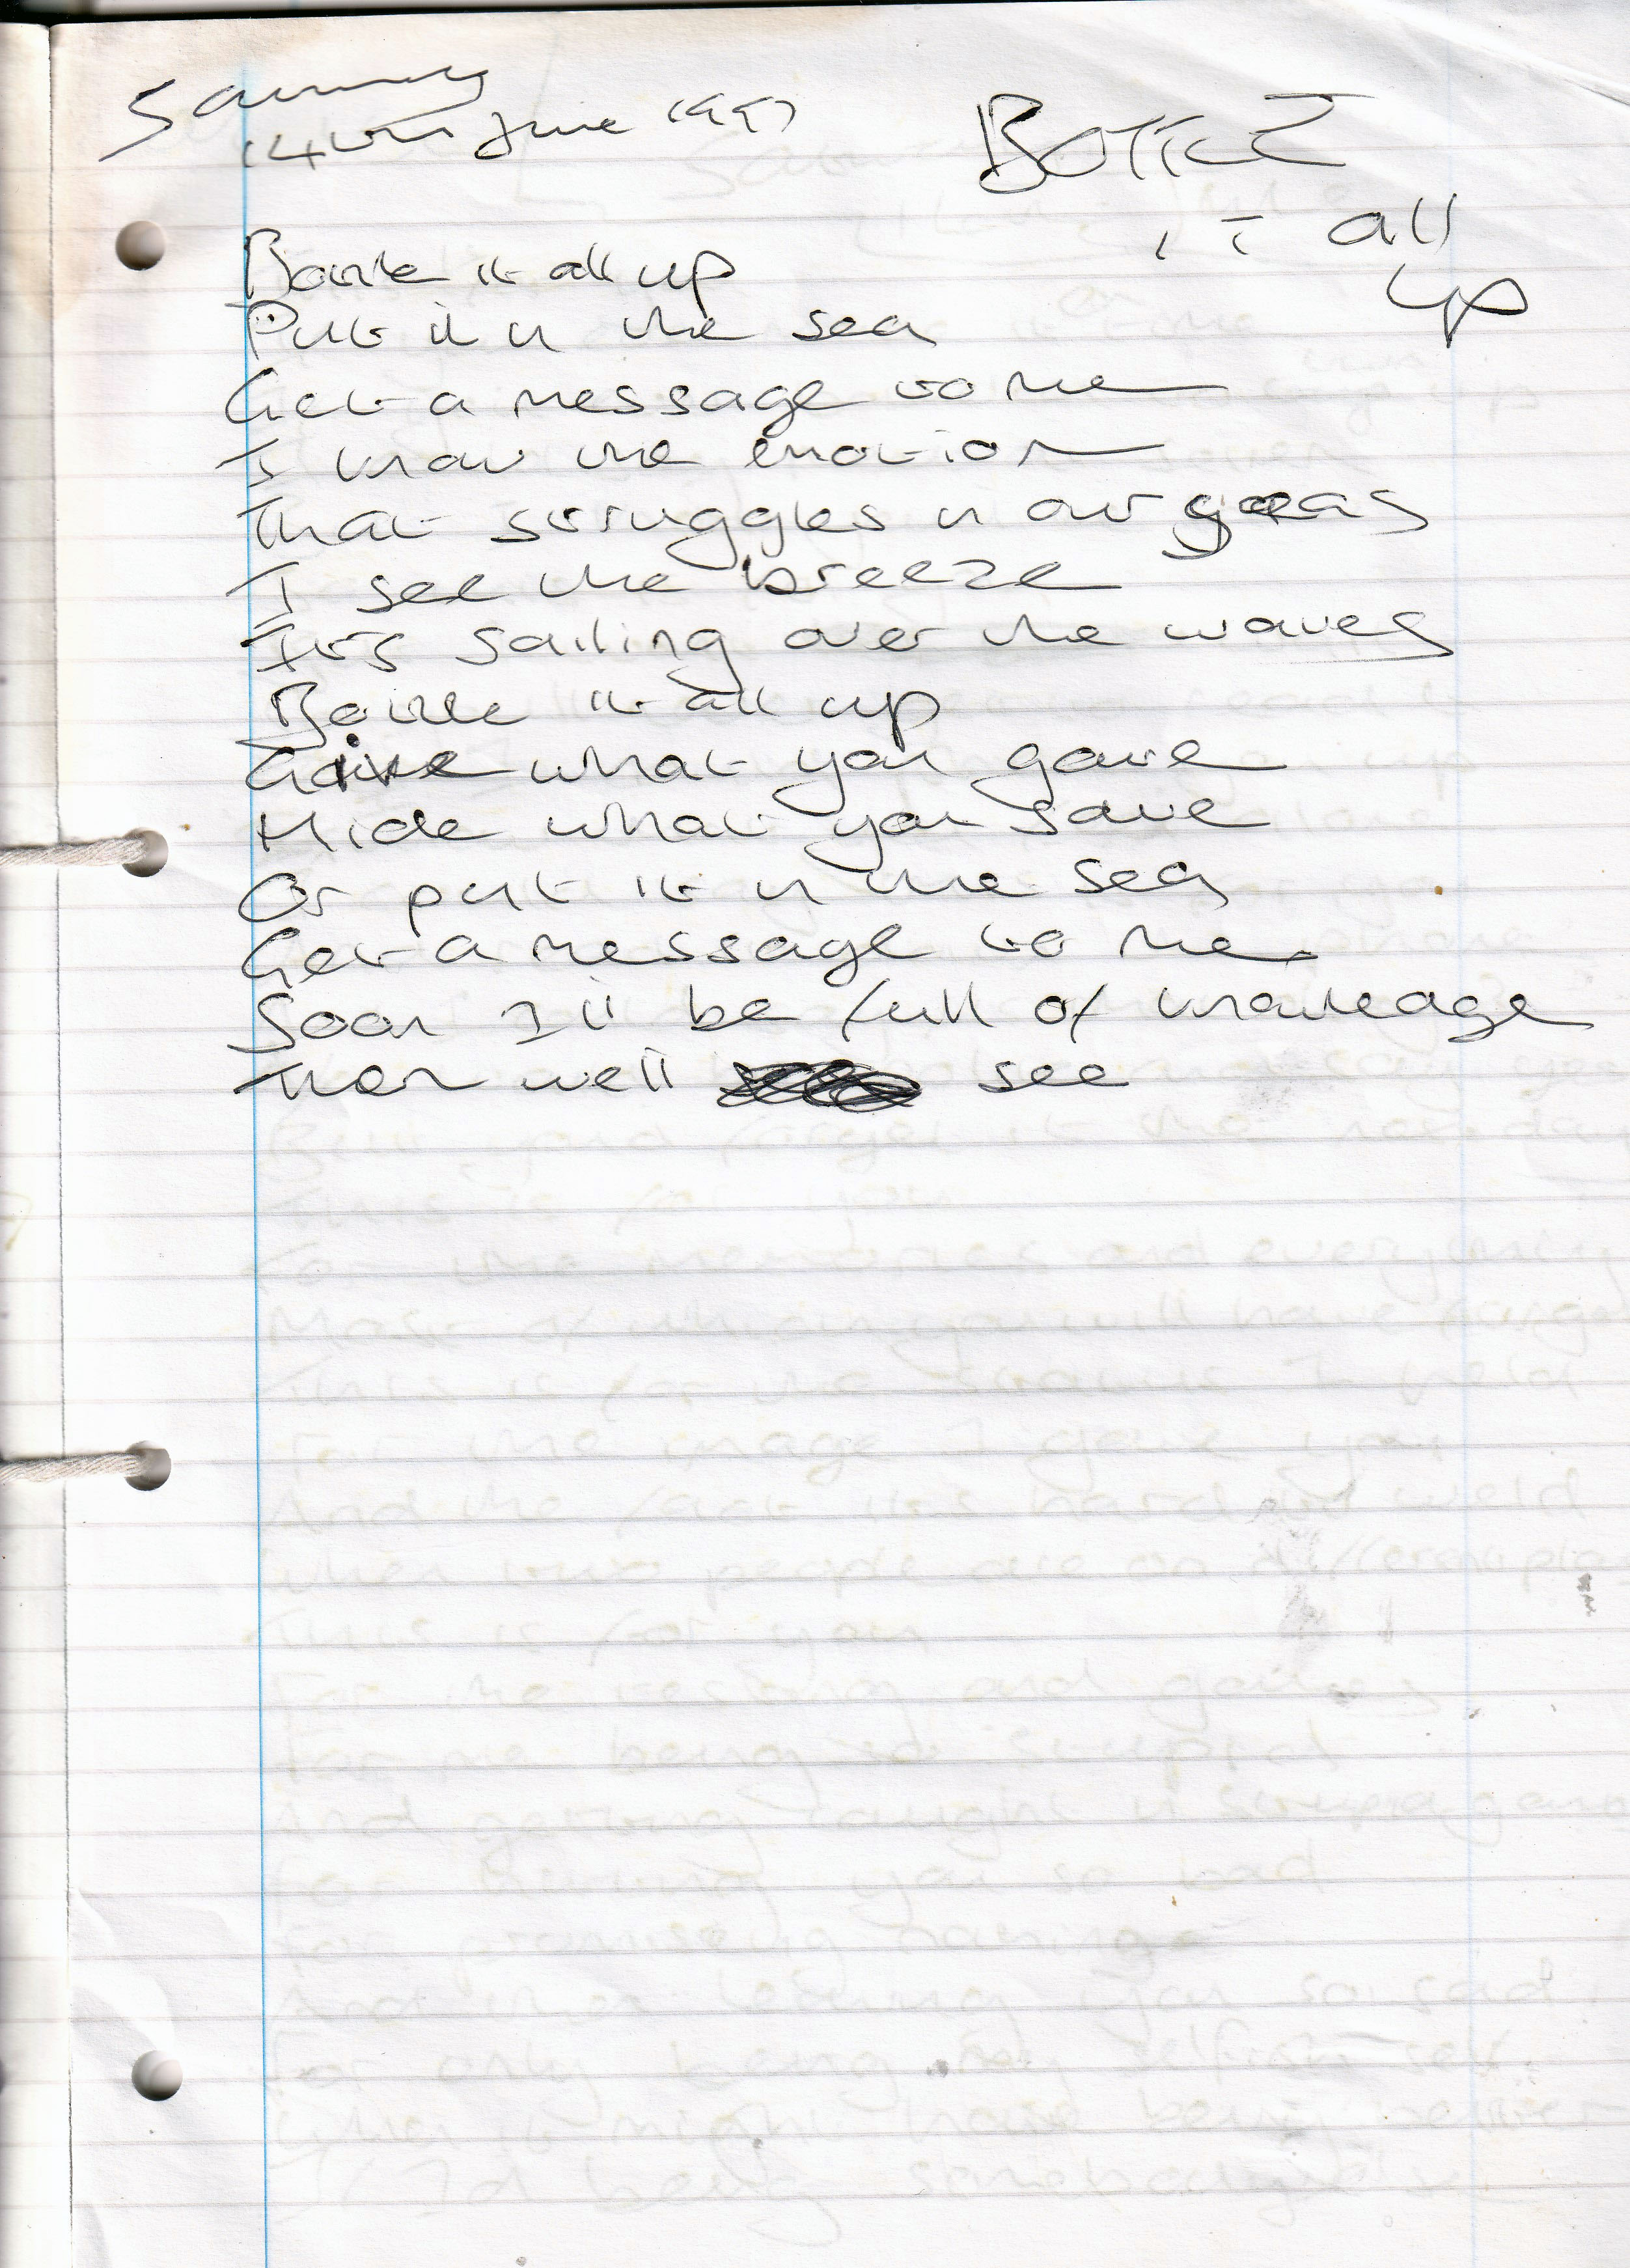 Sammy
14th June 1997
BOTTLE
it all
up
Bottle it all up
Put it in the sea
Get a message to me
I know the emotion
That struggles in our
I see the breeze
It's sailing over the waves
Bottle it all up
Give what you gave
Hide what you save
Or put it in the sea
Get a message to me
Soon I'll be full of knowledge
Then we'll see